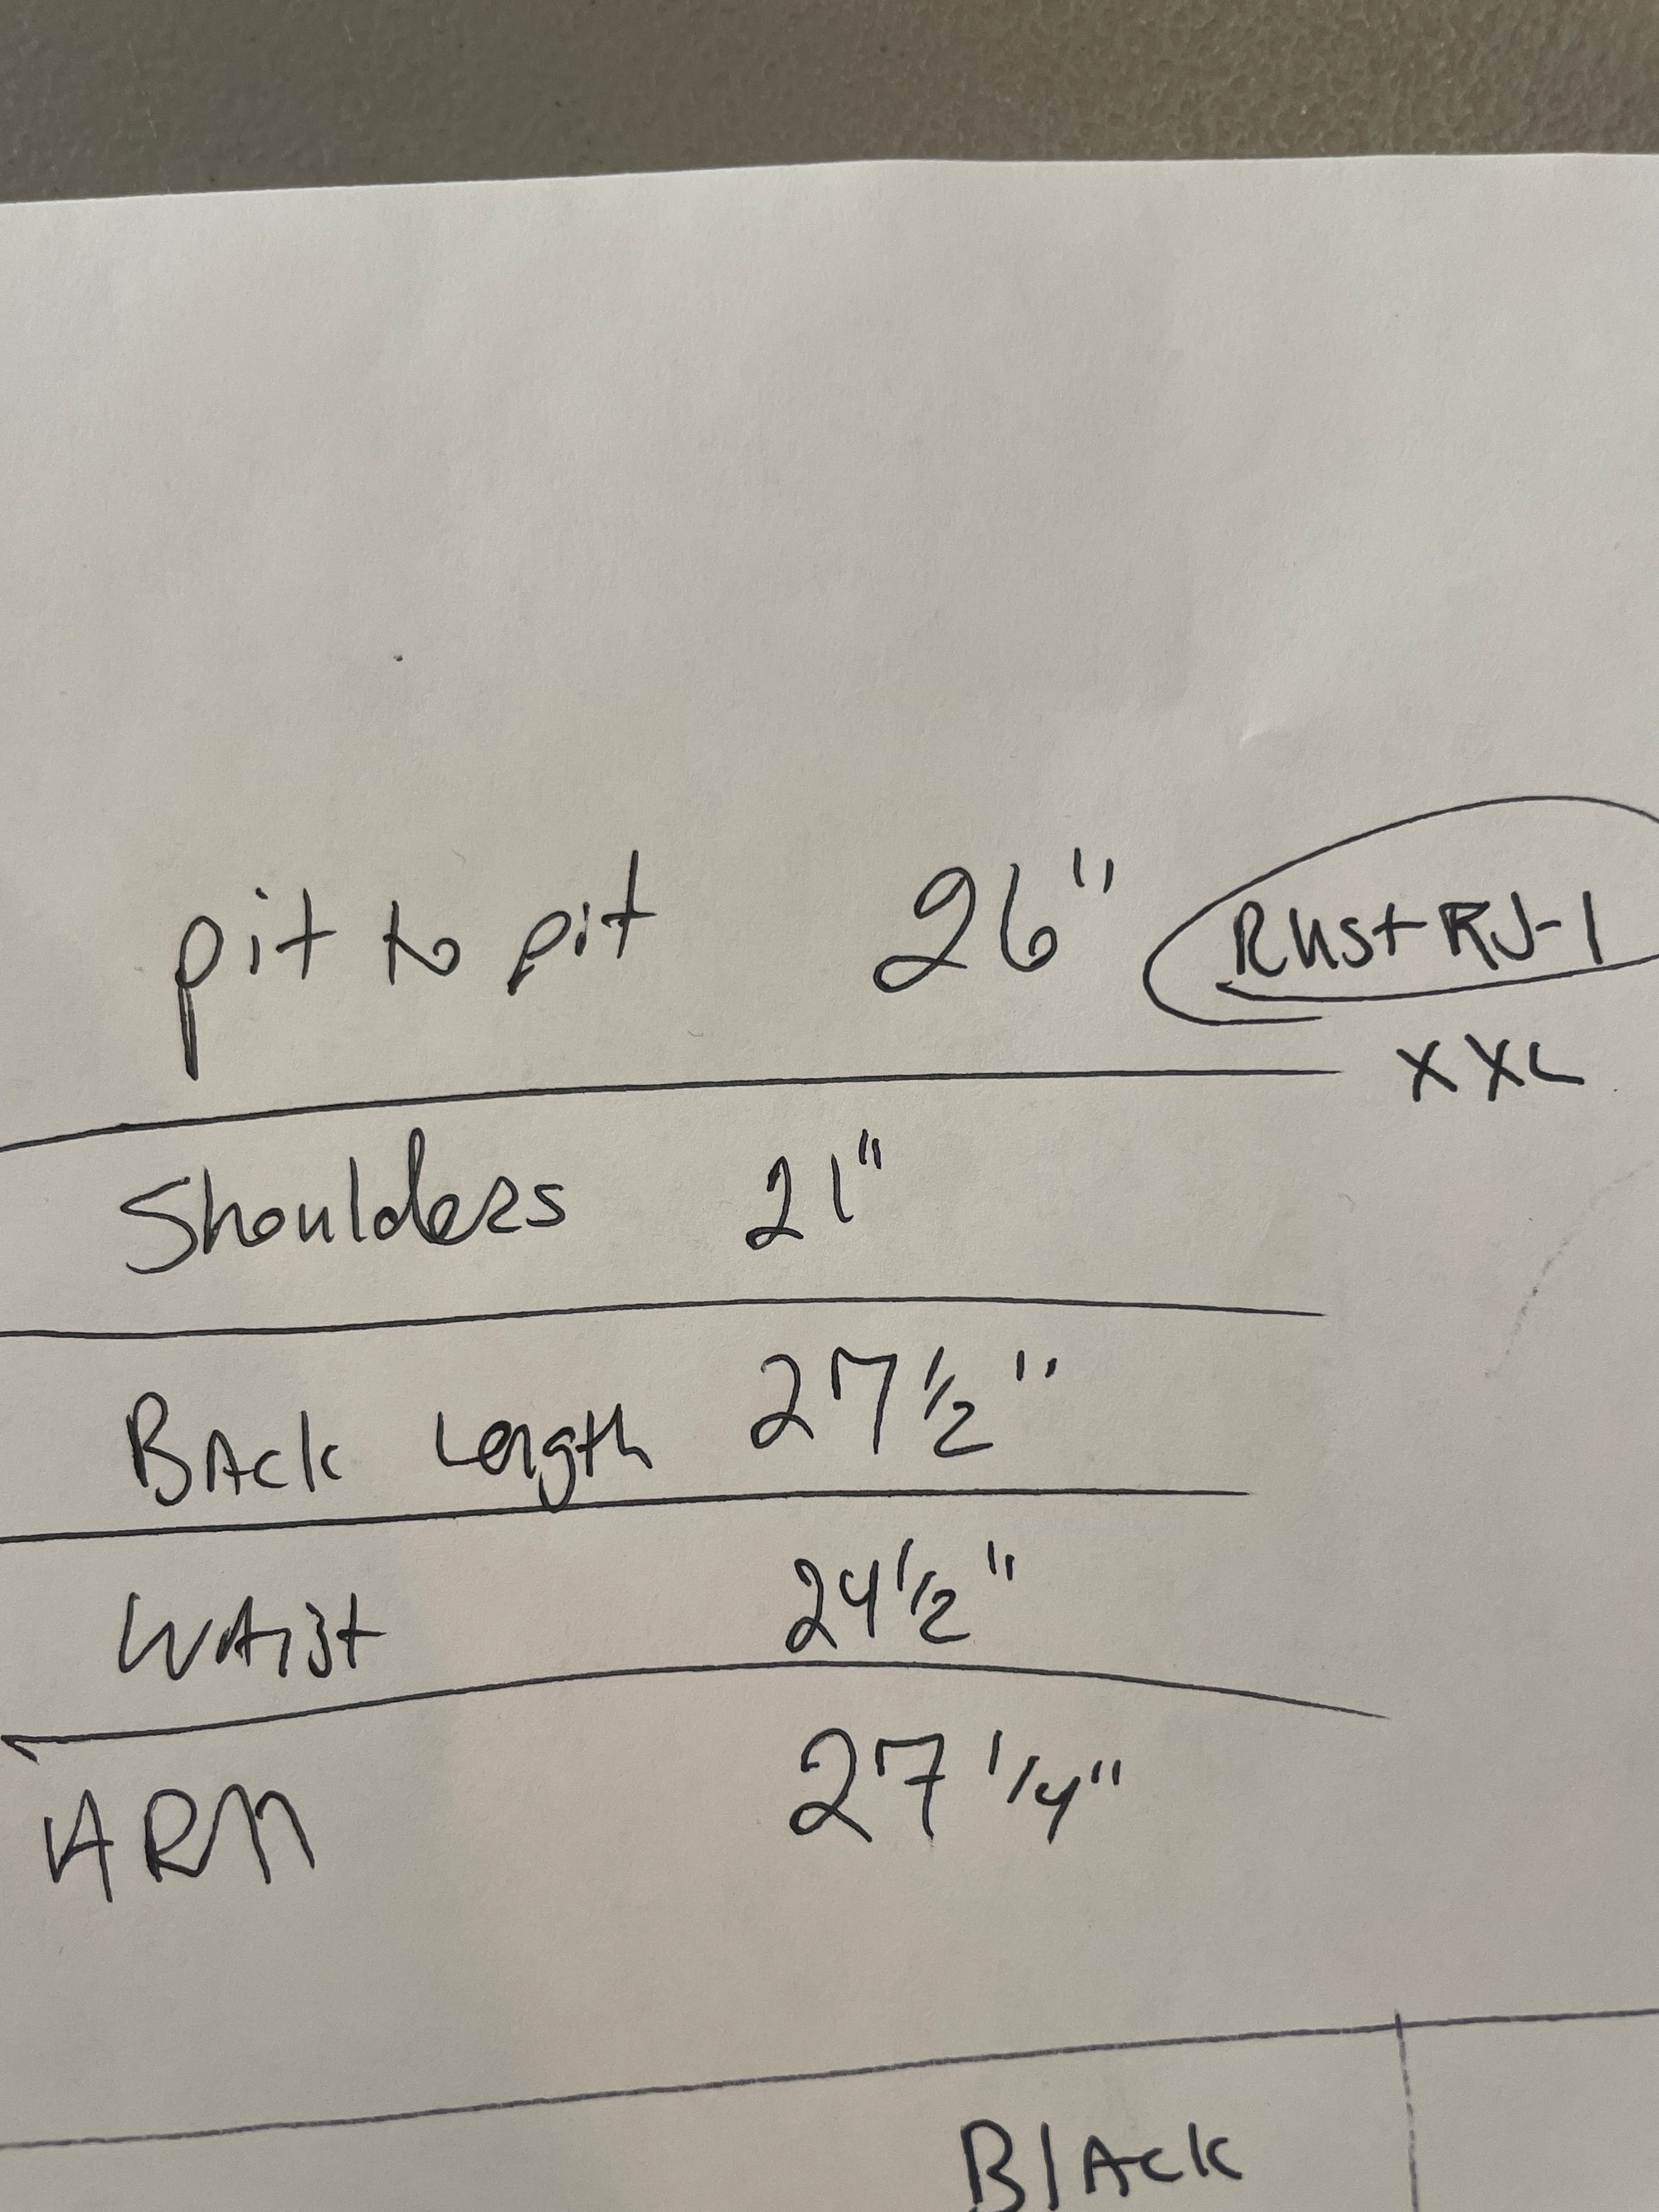 pit to pit 26" Rust RJ-1
XXL
Shoulders 21"
Back Length 27 1/2"
Waist 24 1/2"
ARM 27 1/4"
Black